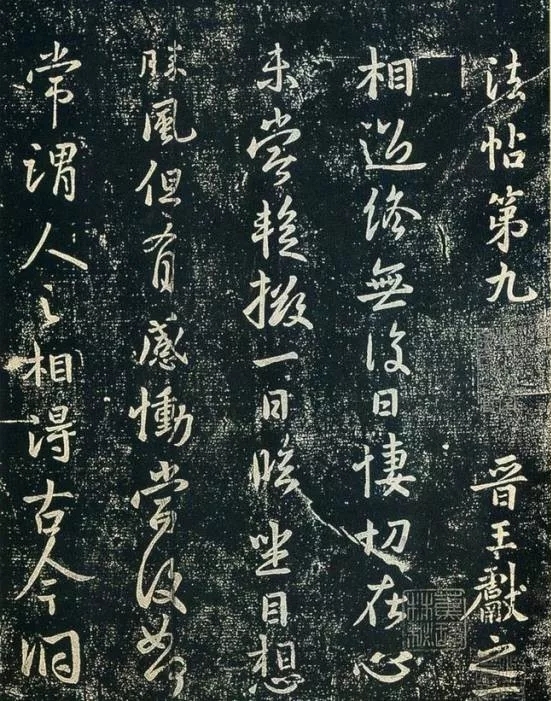 法帖第九 晉王獻之
相過終無復日悽切在心
未嘗暫掇一日臨坐目想
勝風但有感慟當復如何
常謂人之相得古今洞